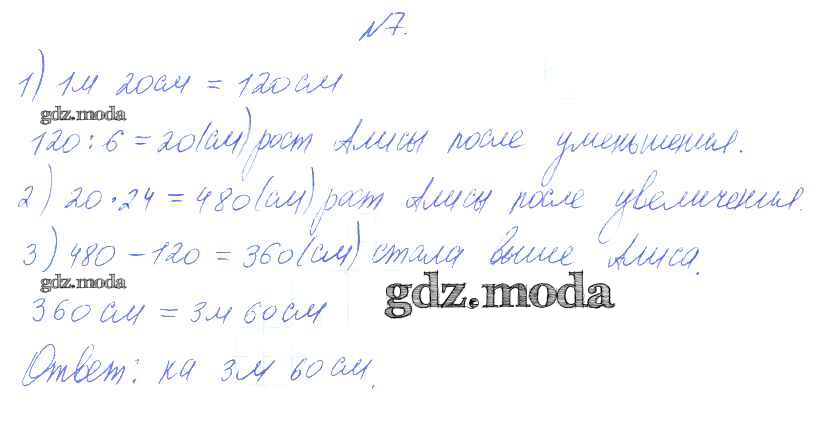 №7.
1) 1м 20см = 120см
gdz.moda
120 : 6 = 20(см) рост Алисы после уменьшения.
2) 20 · 24 = 480(см) рост Алисы после увеличения.
3) 480 - 120 = 360(см) стала выше Алиса.
gdz.moda
gdz.moda
360см = 3м 60см
Ответ: на 3м 60см.